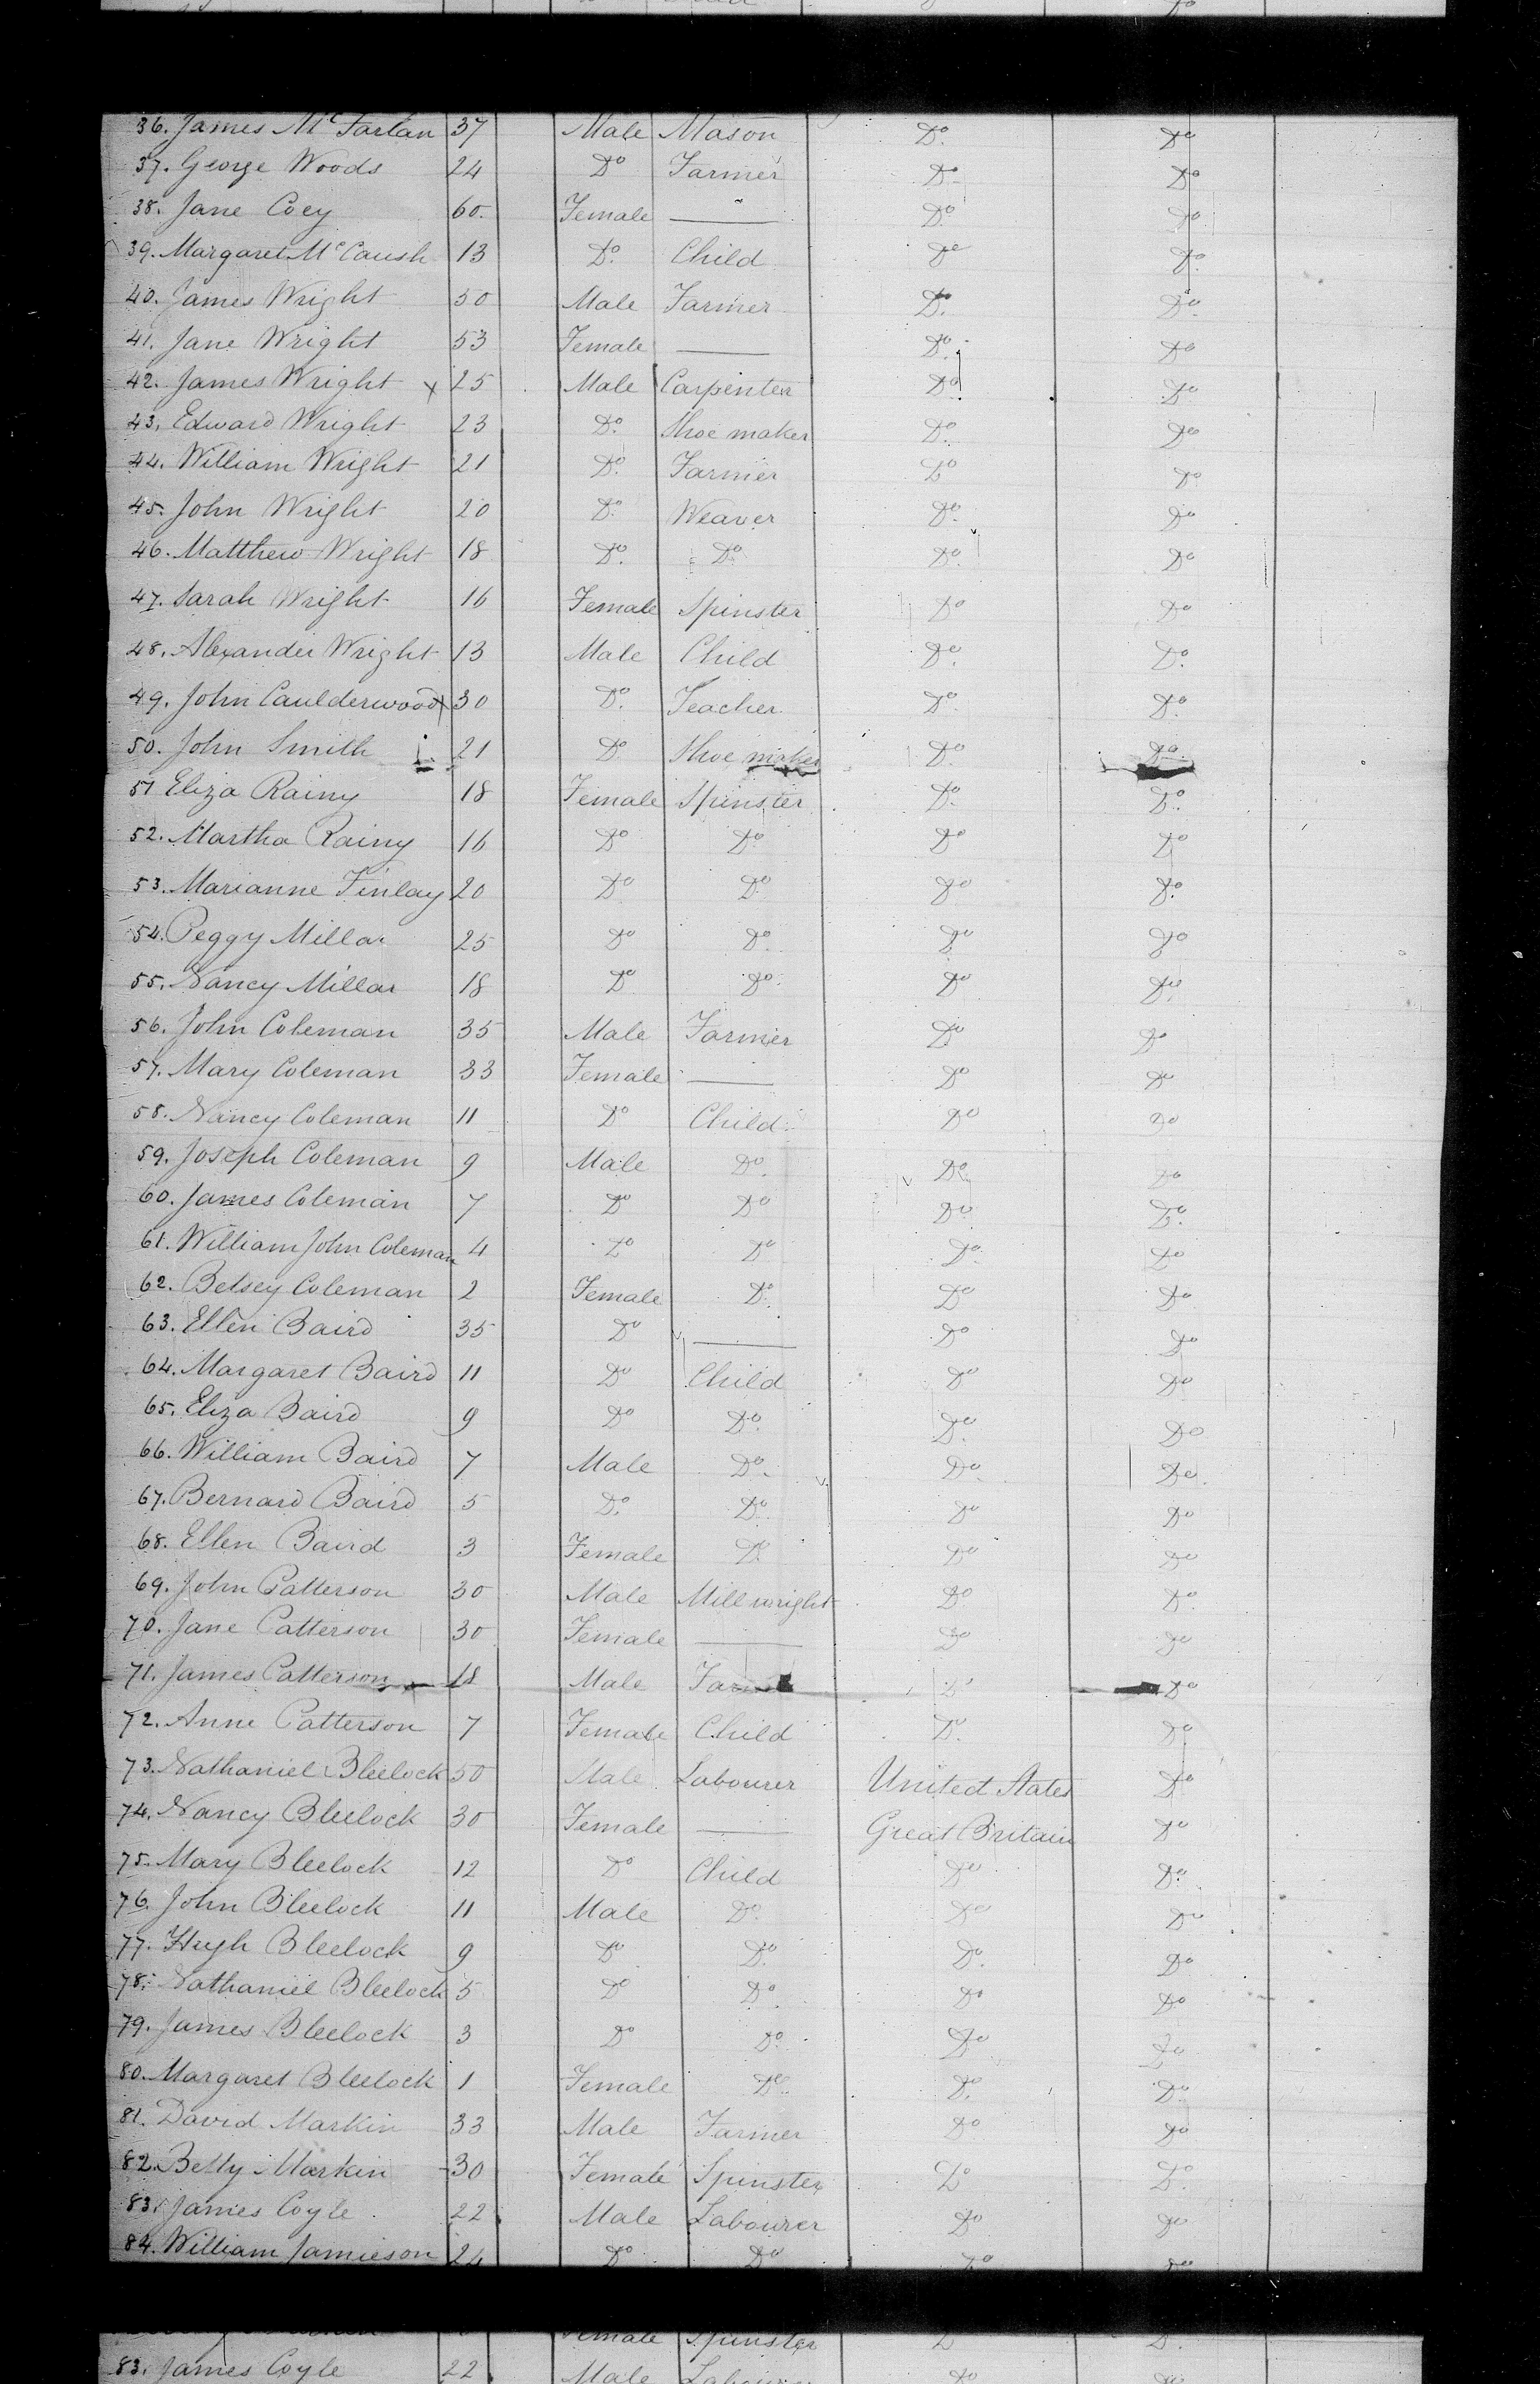 36. James McFarlan 37 Male Mason Do. Do
37. George Woods 24 Do Farmer Do Do
38. Jane Coey 60. Female — Do. Do
39. Margaret McCaush 13 Do. Child Do Do.
40. James Wright 50 Male Farmer Do. Do.
41. Jane Wright 53 Female — Do. Do
42. James Wright x 25 Male Carpenter Do. Do
43. Edward Wright 23 Do. Shoe maker Do. Do
44. William Wright 21 Do. Farmer Do Do
45. John Wright 20 Do. Weaver Do. Do
46. Matthew Wright 18 Do. Do. Do. Do
47. Sarah Wright 16 Female Spinster Do Do
48. Alexander Wright 13 Male Child Do. Do.
49. John Caulderwood x 30 Do. Teacher Do. Do.
50. John Smith 21 Do Shoe maker Do. Do
51 Eliza Rainy 18 Female Spinster Do. Do.
52. Martha Rainy 16 Do Do Do Do
53. Marianne Finlay 20 Do Do Do Do.
54. Peggy Millar 25 Do Do. Do Do
55. Nancy Millar 18 Do Do. Do Do.
56. John Coleman 35 Male Farmer Do Do
57. Mary Coleman 33 Female — Do Do
58. Nancy Coleman 11 Do Child Do Do
59. Joseph Coleman 9 Male Do. Do. Do
60. James Coleman 7 Do Do Do Do.
61. William John Coleman 4 Do Do Do. Do
62. Betsey Coleman 2 Female Do. Do Do
63. Ellen Baird 35 Do — Do Do
64. Margaret Baird 11 Do Child Do Do
65. Eliza Baird 9 Do Do. Do. Do
66. William Baird 7 Male Do. Do. Do.
67. Bernard Baird 5 Do. Do. Do Do
68. Ellen Baird 3 Female Do. Do Do
69. John Patterson 30 Male Millwright Do Do.
70. Jane Patterson 30 Female — Do Do
71. James Patterson 18 Male Do Do
72. Anne Patterson 7 Female Child Do. Do.
73. Nathaniel Bleelock 50 Male Labourer United States Do
74. Nancy Bleelock 30 Female — Great Britain Do
75. Mary Bleelock 12 Do Child Do Do.
76. John Bleelock 11 Male Do. Do Do
77. Hugh Bleelock 9 Do Do. Do. Do
78. Nathaniel Bleelock 5 Do Do. Do Do
79. James Bleelock 3 Do Do. Do Do
80. Margaret Bleelock 1 Female Do. Do. Do.
81. David Markin 33 Male Farmer Do Do
82. Betty Markin 30 Female Spinster Do Do.
83. James Coyle 22 Male Labourer Do Do
84. William Jamieson 24 Do Do Do Do
Female Spinster Do Do.
83. James Coyle 22 Male Do Do